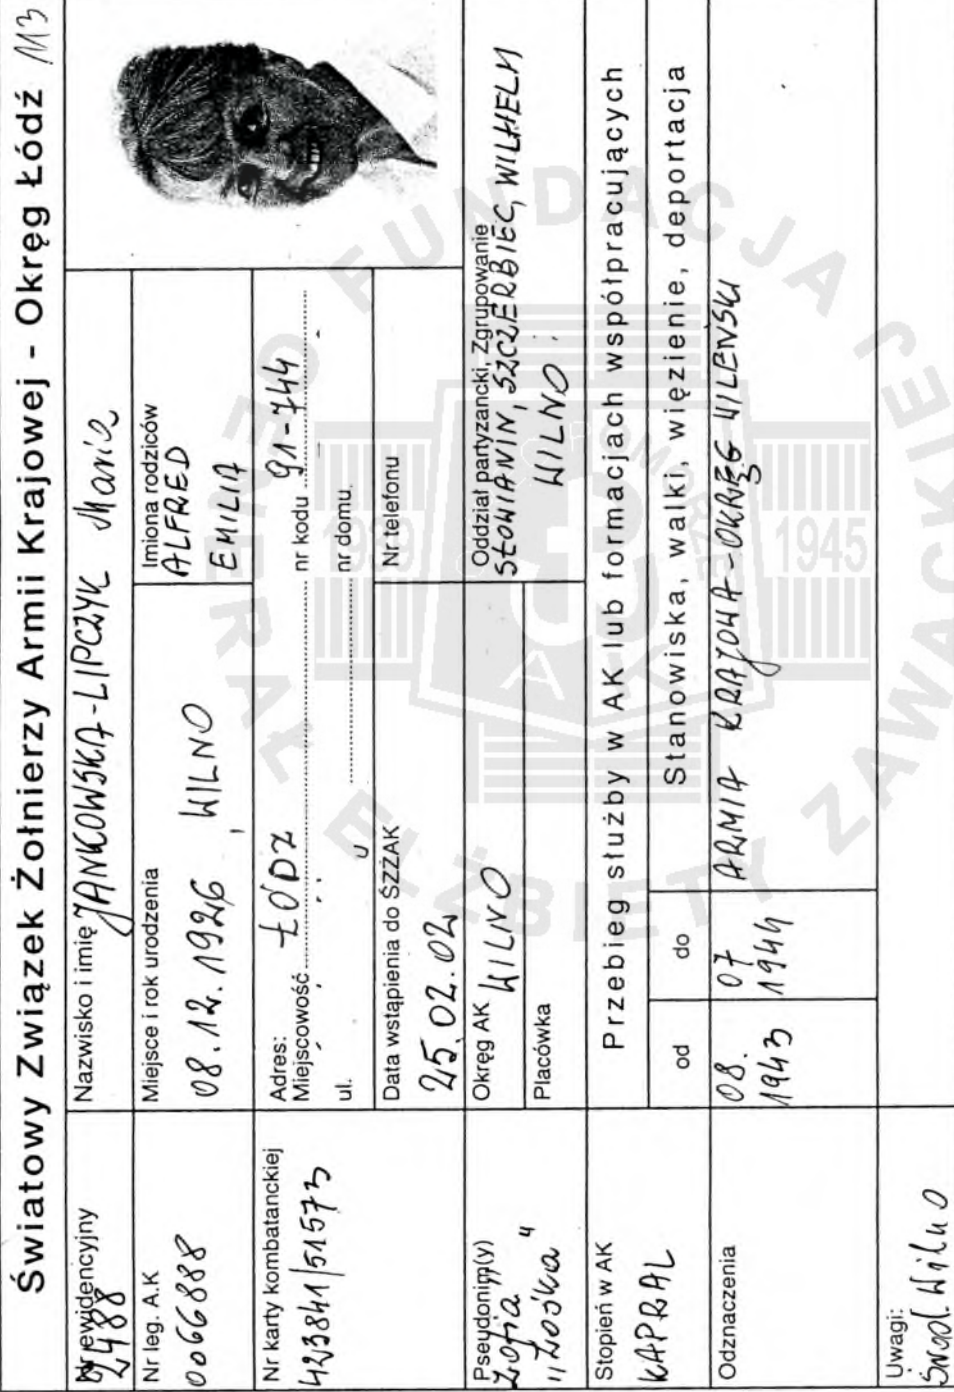 Światowy Związek Żołnierzy Armii Krajowej - Okręg Łódź M3
Nr ewidencyjny
2488
Nazwisko i imię JANKOWSKA-LIPCZYK Maria
Nr leg. A.K
0066888
Miejsce i rok urodzenia
08.12.1926, WILNO
Imiona rodziców
ALFRED
EMILIA
Nr karty kombatanckiej
423841/51573
Adres:
Miejscowość ŁÓDZ nr kodu 91-744
ul. nr domu
Data wstąpienia do ŚZŻAK
25.02.02
Nr telefonu
Pseudonim(y)
Zofia
"Zośka"
Okręg AK WILNO
Placówka
Oddział partyzancki, Zgrupowanie
SŁOWIANIN, SZCZERBIEC, WILHELM
WILNO
Stopień w AK
KAPRAL
Przebieg służby w AK lub formacjach współpracujących
od do Stanowiska, walki, więzienie, deportacja
Odznaczenia
08. 07 ARMIA KRAJOWA-OKRĘG WILEŃSKI
1943 1944
Uwagi:
Środ. Wilno
FUNDACJA GENERAŁ ELŻBIETY ZAWACKIEJ
POMORZE
1939 1945
AK